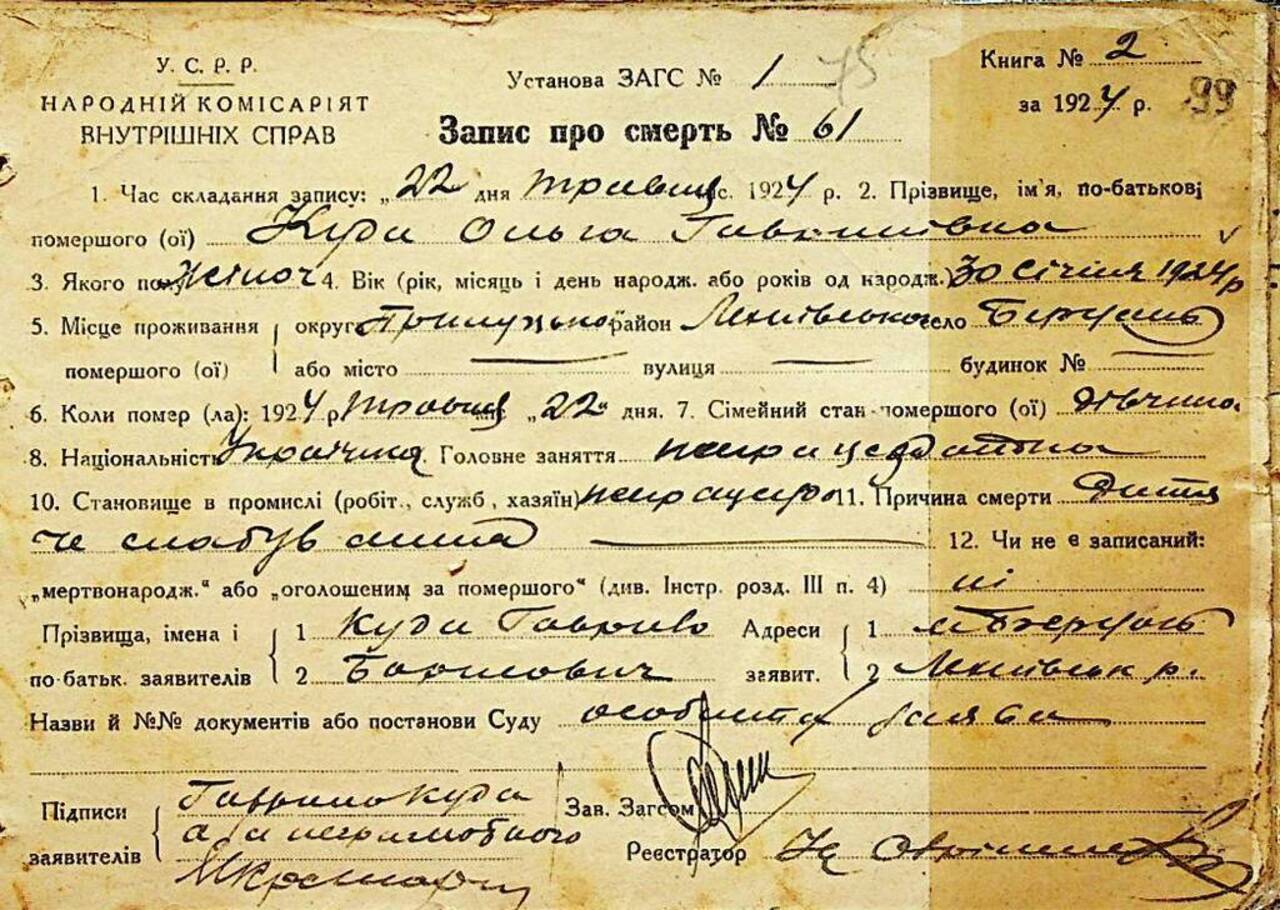 У. С. Р. Р.
НАРОДНІЙ КОМІСАРІЯТ
ВНУТРІШНІХ СПРАВ
Установа ЗАГС № 1
75
Книга № 2
за 1924 р. 99
Запис про смерть № 61
1. Час складання запису: „22 дня травня с. 1924 р. 2. Прізвище, ім'я, по-батькові
помершого (ої) Куди Ольга Гаврилівна
3. Якого полу Жіноч 4. Вік (рік, місяць і день народж. або років од народж.) 30 Січня 1924 р
5. Місце проживання помершого (ої)
округа Прилуцького район село
або місто — вулиця — будинок № —
6. Коли помер (ла): 1924 р травня „22“ дня. 7. Сімейний стан помершого (ої) дівчина
8. Національність Українка. Головне заняття
10. Становище в промислі (робіт., служб, хазяїн) 11. Причина смерти Дитя
12. Чи не є записаний:
„мертвонародж.“ або „оголошеним за помершого“ (див. Інстр. розд. III п. 4) ні
Прізвища, імена і по-батьк. заявителів
1 Куди Гаврило
2
Адреси заявит.
1
2 р.
Назви й №№ документів або постанови Суду особиста заява
Підписи заявителів
Гаврило Куда
а за неграмотного
Зав. Загсом
Реєстратор